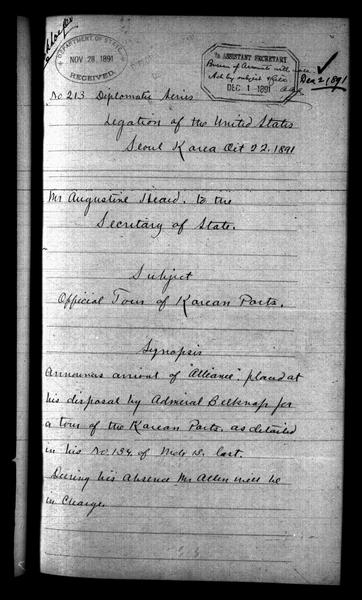 DEPARTMENT OF STATE,
NOV 28 1891
RECEIVED.
2D ASSISTANT SECRETARY
Bureau of Accounts will note.
Ack by subject
DEC 1 1891
Dec 2, 1891
No 213 Diplomatic Series
Legation of the United States
Seoul Korea Oct 22. 1891
Mr Augustine Heard. to the
Secretary of State.
Subject
Official Tour of Korean Ports.
Synopsis
Announces arrival of "Alliance". placed at
his disposal by Admiral Belknap for
a tour of the Korean Ports. as detailed
in his No. 134, of last.
During his absence Mr Allen will be
in Charge.